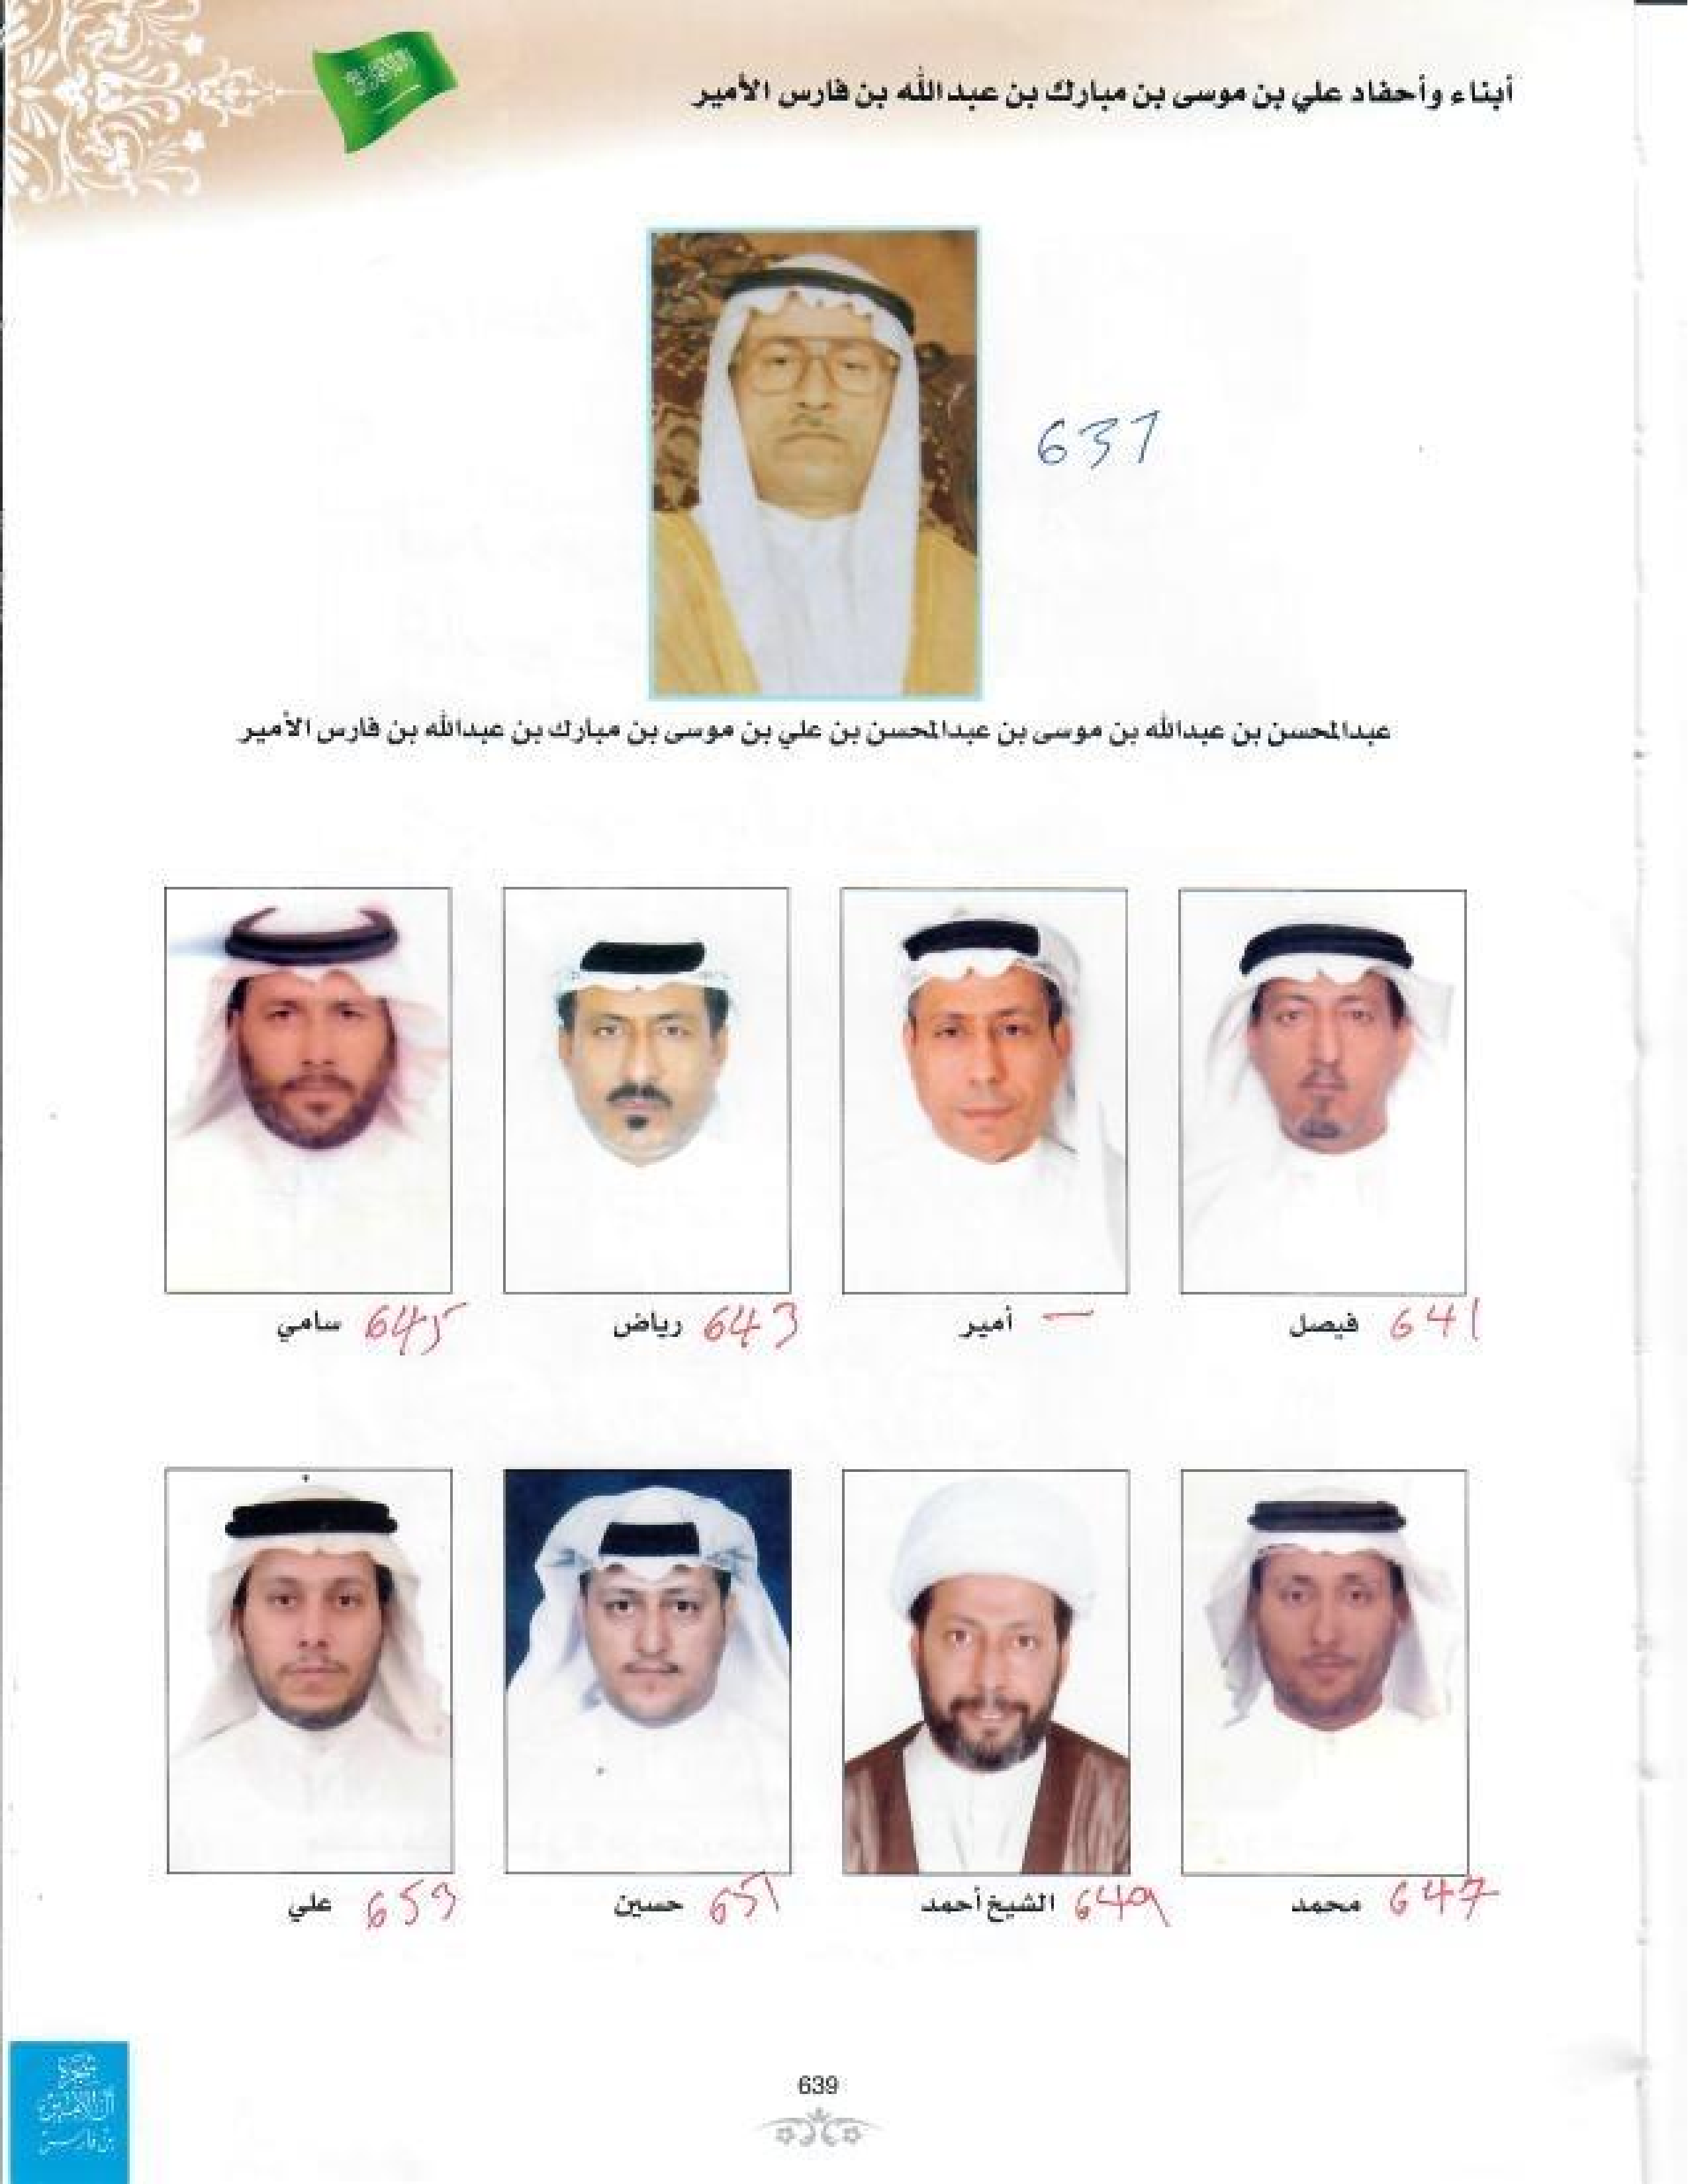 أبناء وأحفاد علي بن موسى بن مبارك بن عبد الله بن فارس الأمير
637
عبدالمحسن بن عبدالله بن موسى بن عبدالمحسن بن علي بن موسى بن مبارك بن عبدالله بن فارس الأمير
641 فيصل
— أمير
643 رياض
645 سامي
647 محمد
649 الشيخ أحمد
651 حسين
653 علي
شجرة
آل الأمير
بن فارس
639